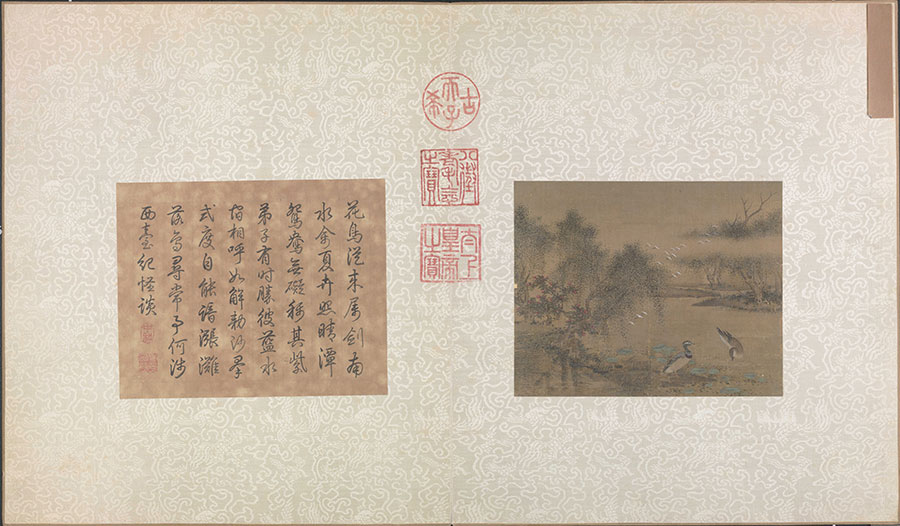 古希天子
八徵耄念之寶
太上皇帝之寶
花鳥從來屬劍南
水禽夏卉照晴潭
鴛鴦無礙稱其紫
弟子有時勝彼藍水
宿相呼如解勅沙羣
式度自能諳漲灘
落為尋常事何涉
西臺紀怪談